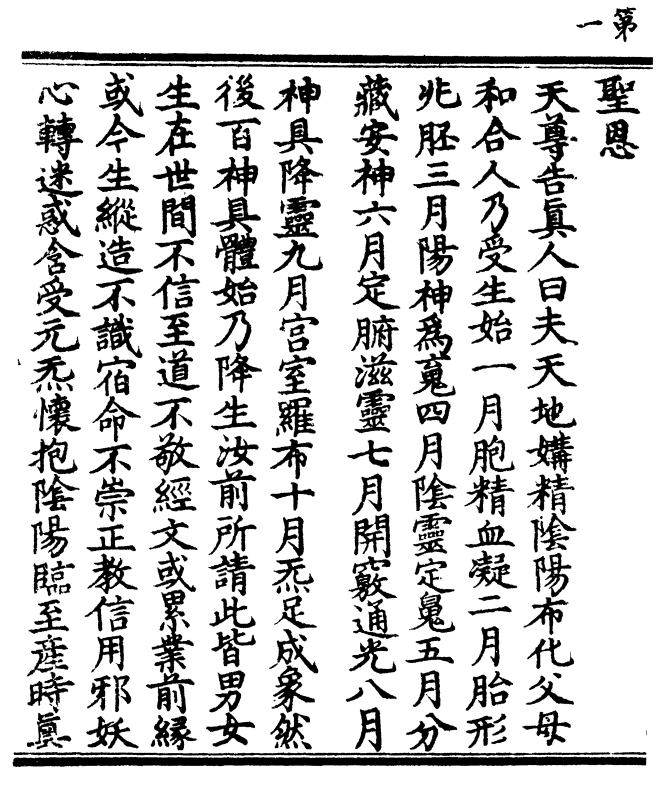 第一
聖恩
天尊告眞人曰夫天地媾精陰陽布化父母
和合人乃受生始一月胞精血凝二月胎形
兆胚三月陽神爲䰟四月陰靈定䰟五月分
藏安神六月定腑滋靈七月開竅通光八月
神具降靈九月宮室羅布十月炁足成象然
後百神具體始乃降生汝前所請此皆男女
生在世間不信至道不敬經文或累業前緣
或今生縱造不識宿命不崇正教信用邪妖
心轉迷惑含受元炁懷抱陰陽臨至產時眞